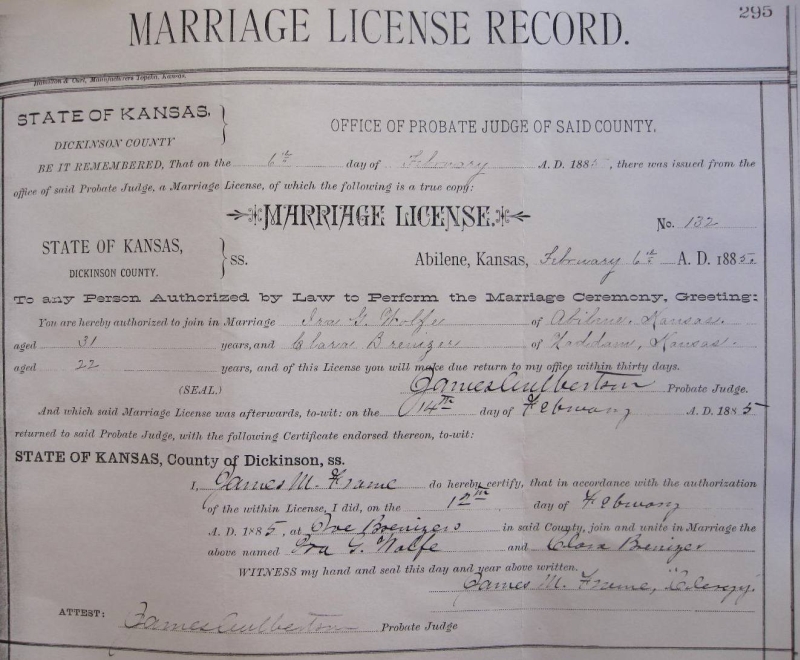 295
MARRIAGE LICENSE RECORD.
Hamilton & Co., Manufacturers Topeka, Kansas
STATE OF KANSAS.
DICKINSON COUNTY
OFFICE OF PROBATE JUDGE OF SAID COUNTY.
BE IT REMEMBERED, That on the 6th day of February A. D. 1885, there was issued from the
office of said Probate Judge, a Marriage License, of which the following is a true copy:
MARRIAGE LICENSE.
No. 132
STATE OF KANSAS,
DICKINSON COUNTY.
ss.
Abilene, Kansas, February 6th A. D. 1885.
To any Person Authorized by Law to Perform the Marriage Ceremony, Greeting:
You are hereby authorized to join in Marriage Ira G. Wolfe of Abilene, Kansas.
aged 31 years, and Clara Brenizer of Haddam, Kansas.
aged 22 years, and of this License you will make due return to my office within thirty days.
(SEAL.) James Culbertson Probate Judge.
And which said Marriage License was afterwards, to-wit: on the 14th day of February A. D. 1885
returned to said Probate Judge, with the following Certificate endorsed thereon, to-wit:
STATE OF KANSAS, County of Dickinson, ss.
I, James M. Frame do hereby certify, that in accordance with the authorization
of the within License, I did, on the 12th day of February
A. D. 1885, at Brenizers in said County, join and unite in Marriage the
above named Ira G. Wolfe and Clara Brenizer
WITNESS my hand and seal this day and year above written.
James M. Frame, Clergy.
ATTEST: James Culbertson Probate Judge